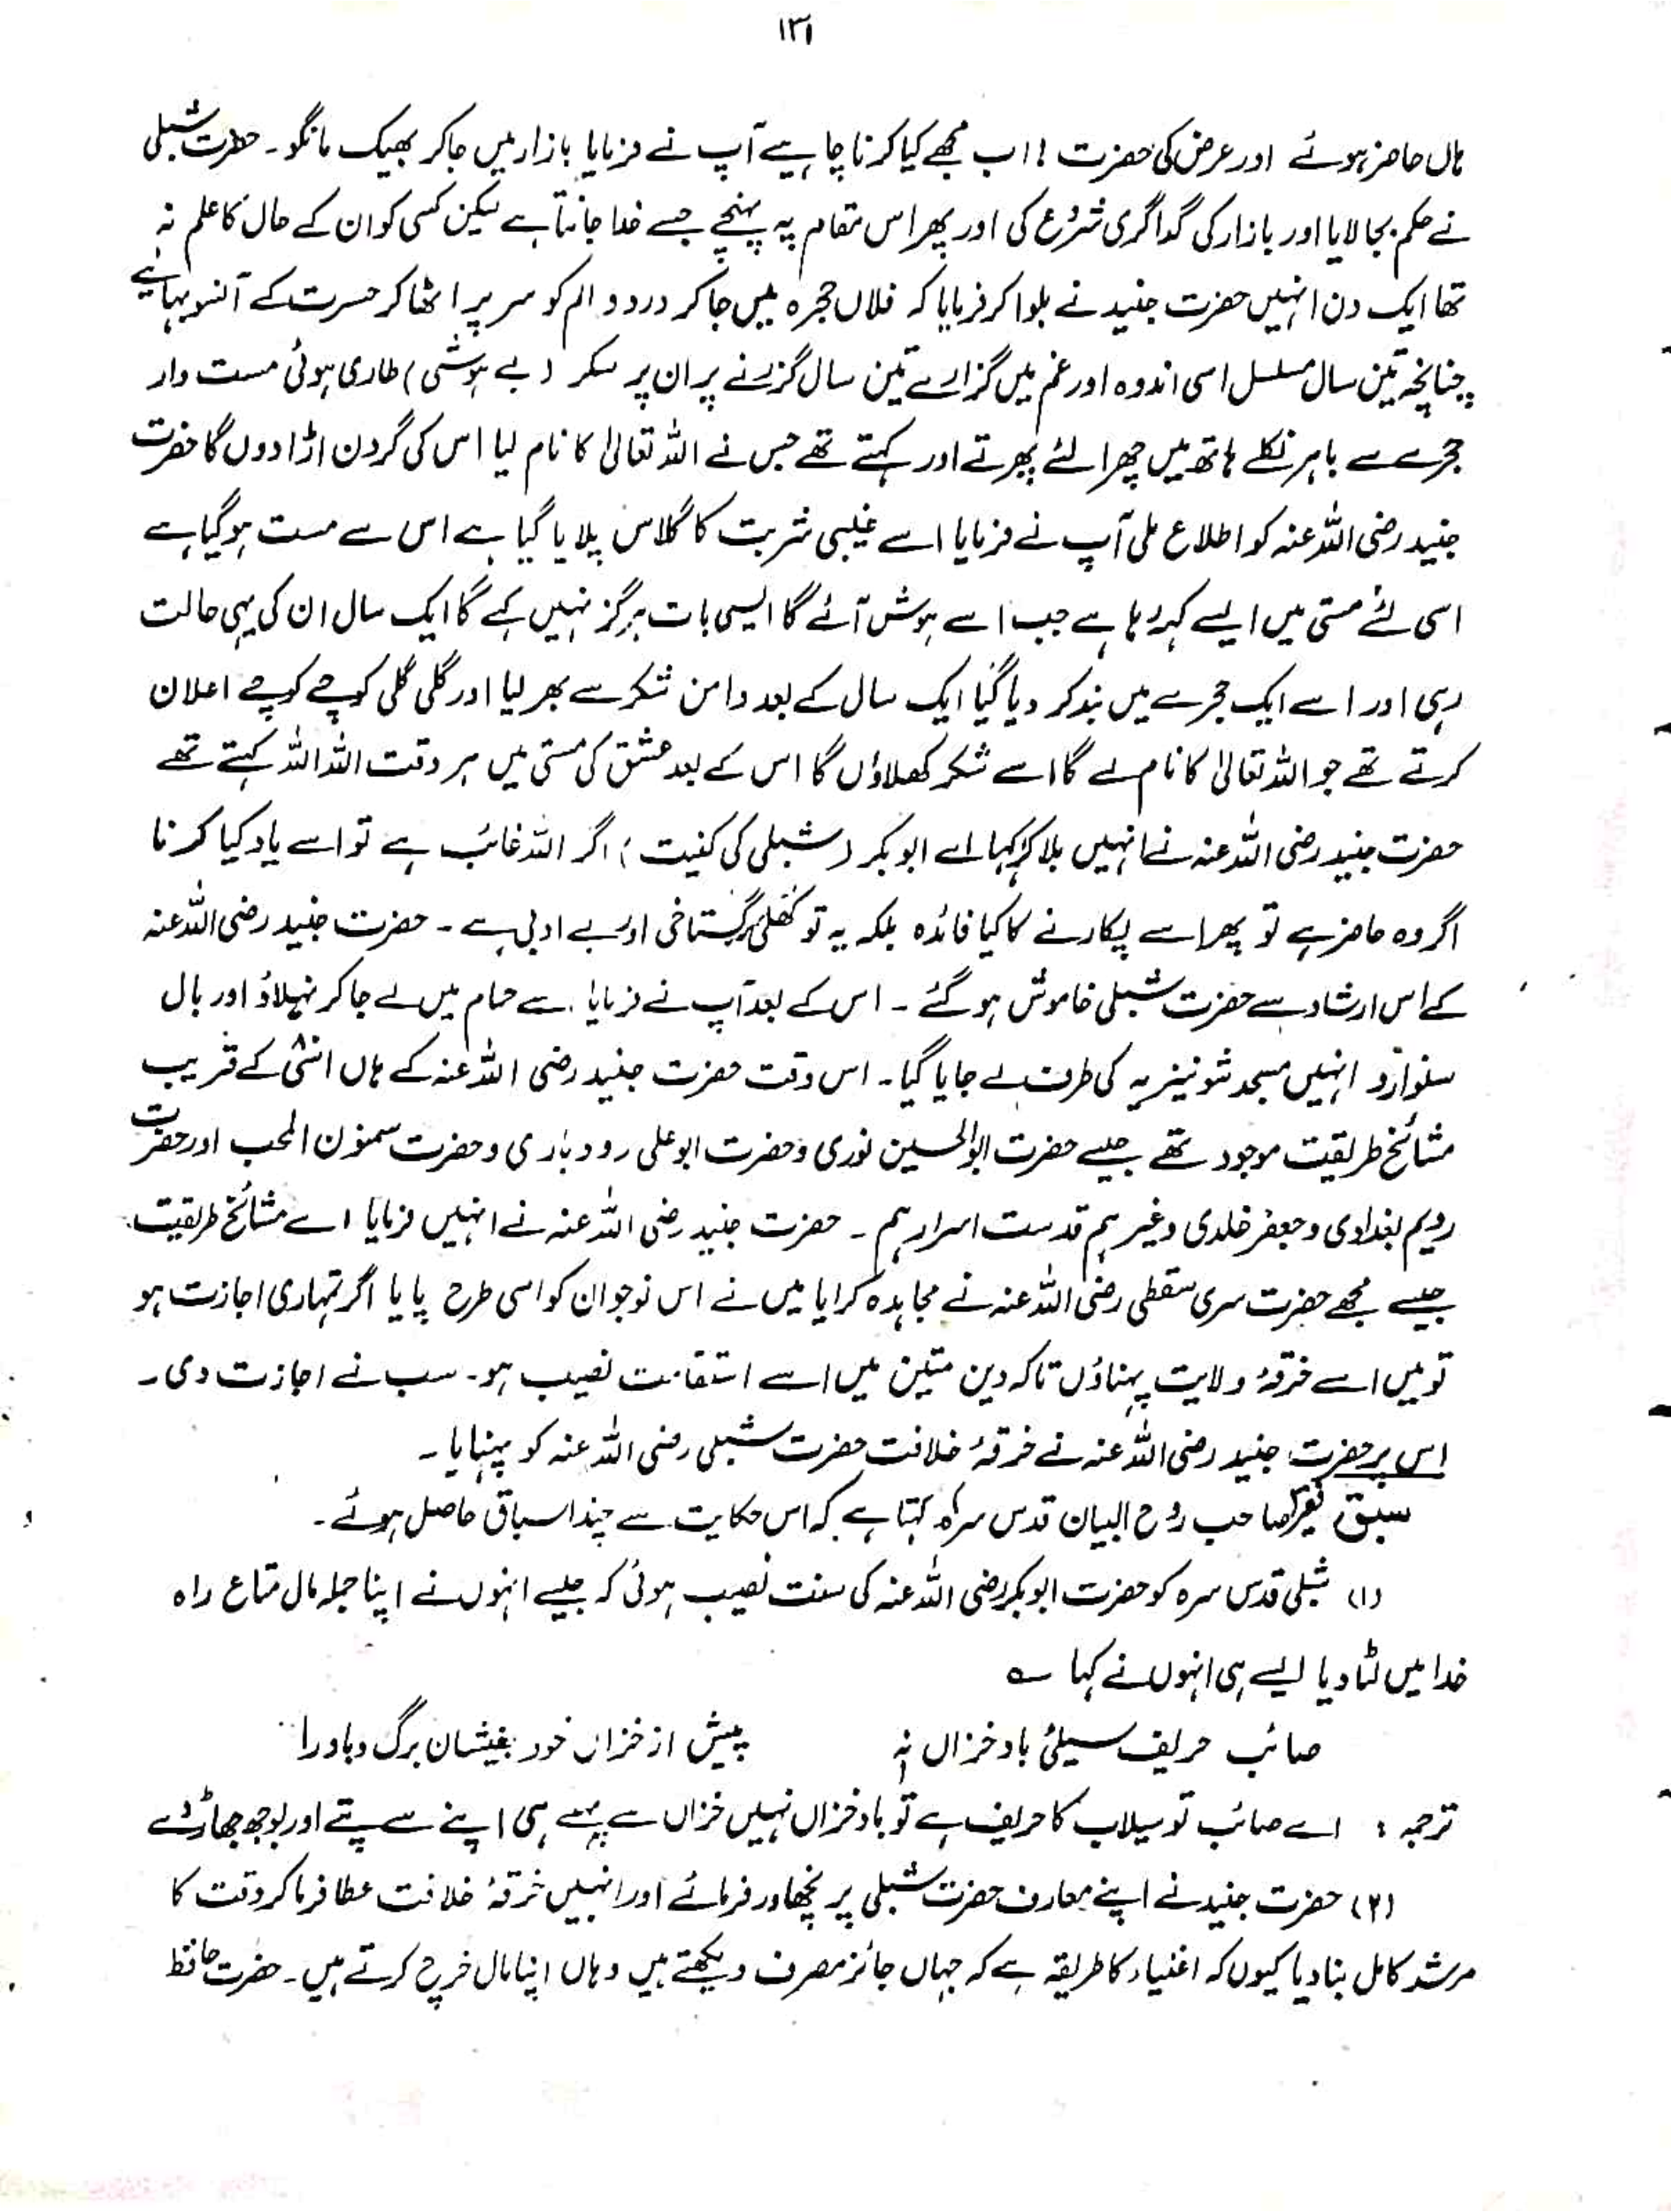 ۱۳۱
ہاں حاضر ہوئے اور عرض کی حضرت ! اب مجھے کیا کرنا چاہیے آپ نے فرمایا بازار میں جا کر بھیک مانگو۔ حضرت شبلی
نے حکم بجا لایا اور بازار کی گداگری شروع کی اور پھر اس مقام پہ پہنچے جسے خدا جانتا ہے لیکن کسی کو ان کے حال کا علم نہ
تھا ایک دن انہیں حضرت جنید نے بلوا کر فرمایا کہ فلاں حجرہ میں جا کر درد و الم کو سر پر اٹھا کر حسرت کے آنسو بہائیے
چنانچہ تین سال مسلسل اسی اندوہ اور غم میں گزارے تین سال گزرنے پر ان پر سکر (بے ہوشی) طاری ہوئی مست وار
حجرے سے باہر نکلے ہاتھ میں چھرا لئے پھرتے اور کہتے تھے جس نے اللہ تعالیٰ کا نام لیا اس کی گردن اڑا دوں گا حضرت
جنید رضی اللہ عنہ کو اطلاع ملی آپ نے فرمایا اسے غیبی شربت کا گلاس پلایا گیا ہے اس سے مست ہو گیا ہے
اسی لئے مستی میں ایسے کہہ رہا ہے جب اسے ہوش آئے گا ایسی بات ہرگز نہیں کہے گا ایک سال ان کی یہی حالت
رہی اور اسے ایک حجرے میں بند کر دیا گیا ایک سال کے بعد دامن شکر سے بھر لیا اور گلی گلی کوچے کوچے اعلان
کرتے تھے جو اللہ تعالیٰ کا نام لے گا اسے شکر کھلاؤں گا اس کے بعد عشق کی مستی میں ہر وقت اللہ اللہ کہتے تھے
حضرت جنید رضی اللہ عنہ نے انہیں بلا کر کہا اے ابو بکر (شبلی کی کنیت) اگر اللہ غائب ہے تو اسے یاد کیا کرنا
اگر وہ حاضر ہے تو پھر اسے پکارنے کا کیا فائدہ بلکہ یہ تو کھلی گستاخی اور بے ادبی ہے۔ حضرت جنید رضی اللہ عنہ
کے اس ارشاد سے حضرت شبلی خاموش ہو گئے۔ اس کے بعد آپ نے فرمایا اسے حمام میں لے جا کر نہلاؤ اور بال
سنوارو انہیں مسجد شونیزیہ کی طرف لے جایا گیا۔ اس وقت حضرت جنید رضی اللہ عنہ کے ہاں اسی کے قریب
مشائخ طریقت موجود تھے جیسے حضرت ابوالحسین نوری و حضرت ابو علی رودباری و حضرت سمنون المحب اور حضرت
رویم بغدادی و جعفر خلدی وغیرہم قدست اسرارہم۔ حضرت جنید رضی اللہ عنہ نے انہیں فرمایا اے مشائخ طریقت
جیسے مجھے حضرت سری سقطی رضی اللہ عنہ نے مجاہدہ کرایا میں نے اس نوجوان کو اسی طرح پایا اگر تمہاری اجازت ہو
تو میں اسے خرقۂ ولایت پہناؤں تاکہ دین متین میں اسے استقامت نصیب ہو۔ سب نے اجازت دی۔
اس پر حضرت جنید رضی اللہ عنہ نے خرقۂ خلافت حضرت شبلی رضی اللہ عنہ کو پہنایا۔
سبق صاحب روح البیان قدس سرہ کہتا ہے کہ اس حکایت سے چند اسباق حاصل ہوئے۔
(۱) شبلی قدس سرہ کو حضرت ابوبکر رضی اللہ عنہ کی سنت نصیب ہوئی کہ جیسے انہوں نے اپنا جملہ مال متاع راہ
خدا میں لٹا دیا ایسے ہی انہوں نے کہا ؎
صائب حریف سیلئ باد خزاں نہ پیش از خزاں خود بفیشان برگ و باد را
ترجمہ : اے صائب تو سیلاب کا حریف ہے تو باد خزاں نہیں خزاں سے پہلے ہی اپنے سے پتے اور بوجھ جھاڑ دے
(۲) حضرت جنید نے اپنے معارف حضرت شبلی پر نچھاور فرمائے اور انہیں خرقۂ خلافت عطا فرما کر وقت کا
مرشد کامل بنا دیا کیوں کہ اغنیاء کا طریقہ ہے کہ جہاں جائز مصرف دیکھتے ہیں وہاں اپنا مال خرچ کرتے ہیں۔ حضرت حافظ